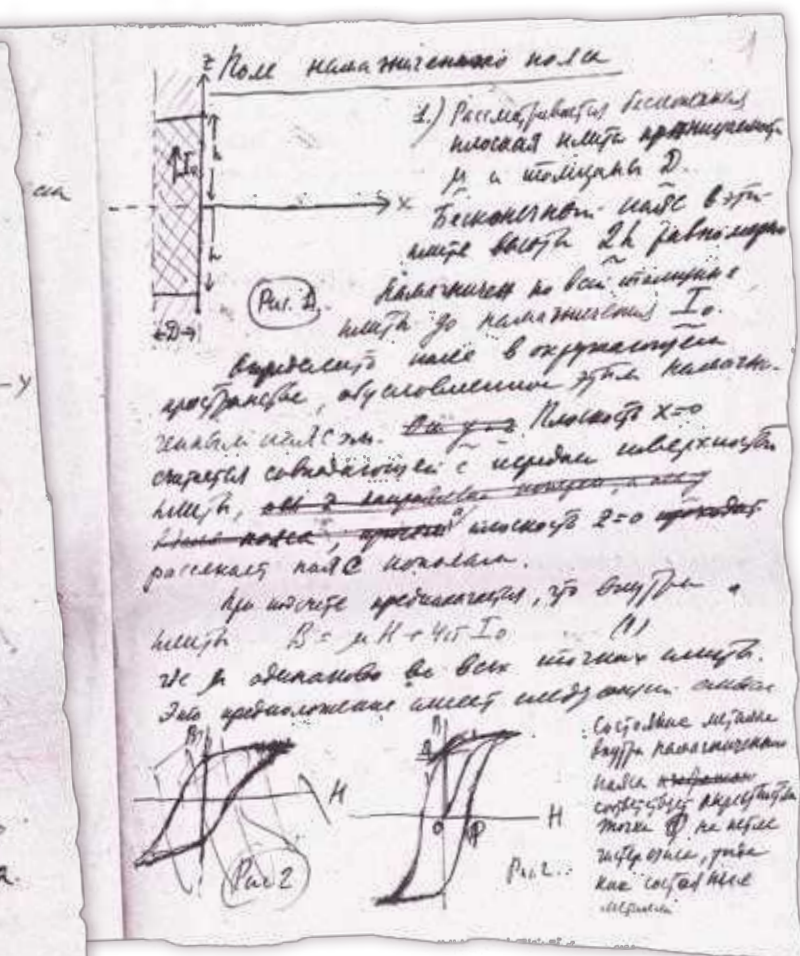 Поле намагниченного пояса
z
h
I₀
x
h
D
Рис. 1.
1.) Рассматривается бесконечная
плоская плита проницаемости
μ и толщины D.
Бесконечный пояс в этой
плите высоты 2h равномерно
намагничен по всей толщине
плиты до намагничения I₀.
Определить поле в окружающем
пространстве, обусловленное этим намагни-
ченным поясом. Плоскость x=0
считается совпадающей с передней поверхностью
плиты, плоскость z=0
рассекает пояс пополам.
При подсчете предполагается, что внутри
плиты B = μH + 4π I₀ (1)
где μ одинаково во всех точках плиты.
Это предположение имеет следующий смысл
B
H
Рис 2
B
O
H
Рис 2.
Состояние металла
внутри намагниченного
пояса
соответствует
точки на петле
гистерезиса, тогда
как состояние
металла
см
Y
а.